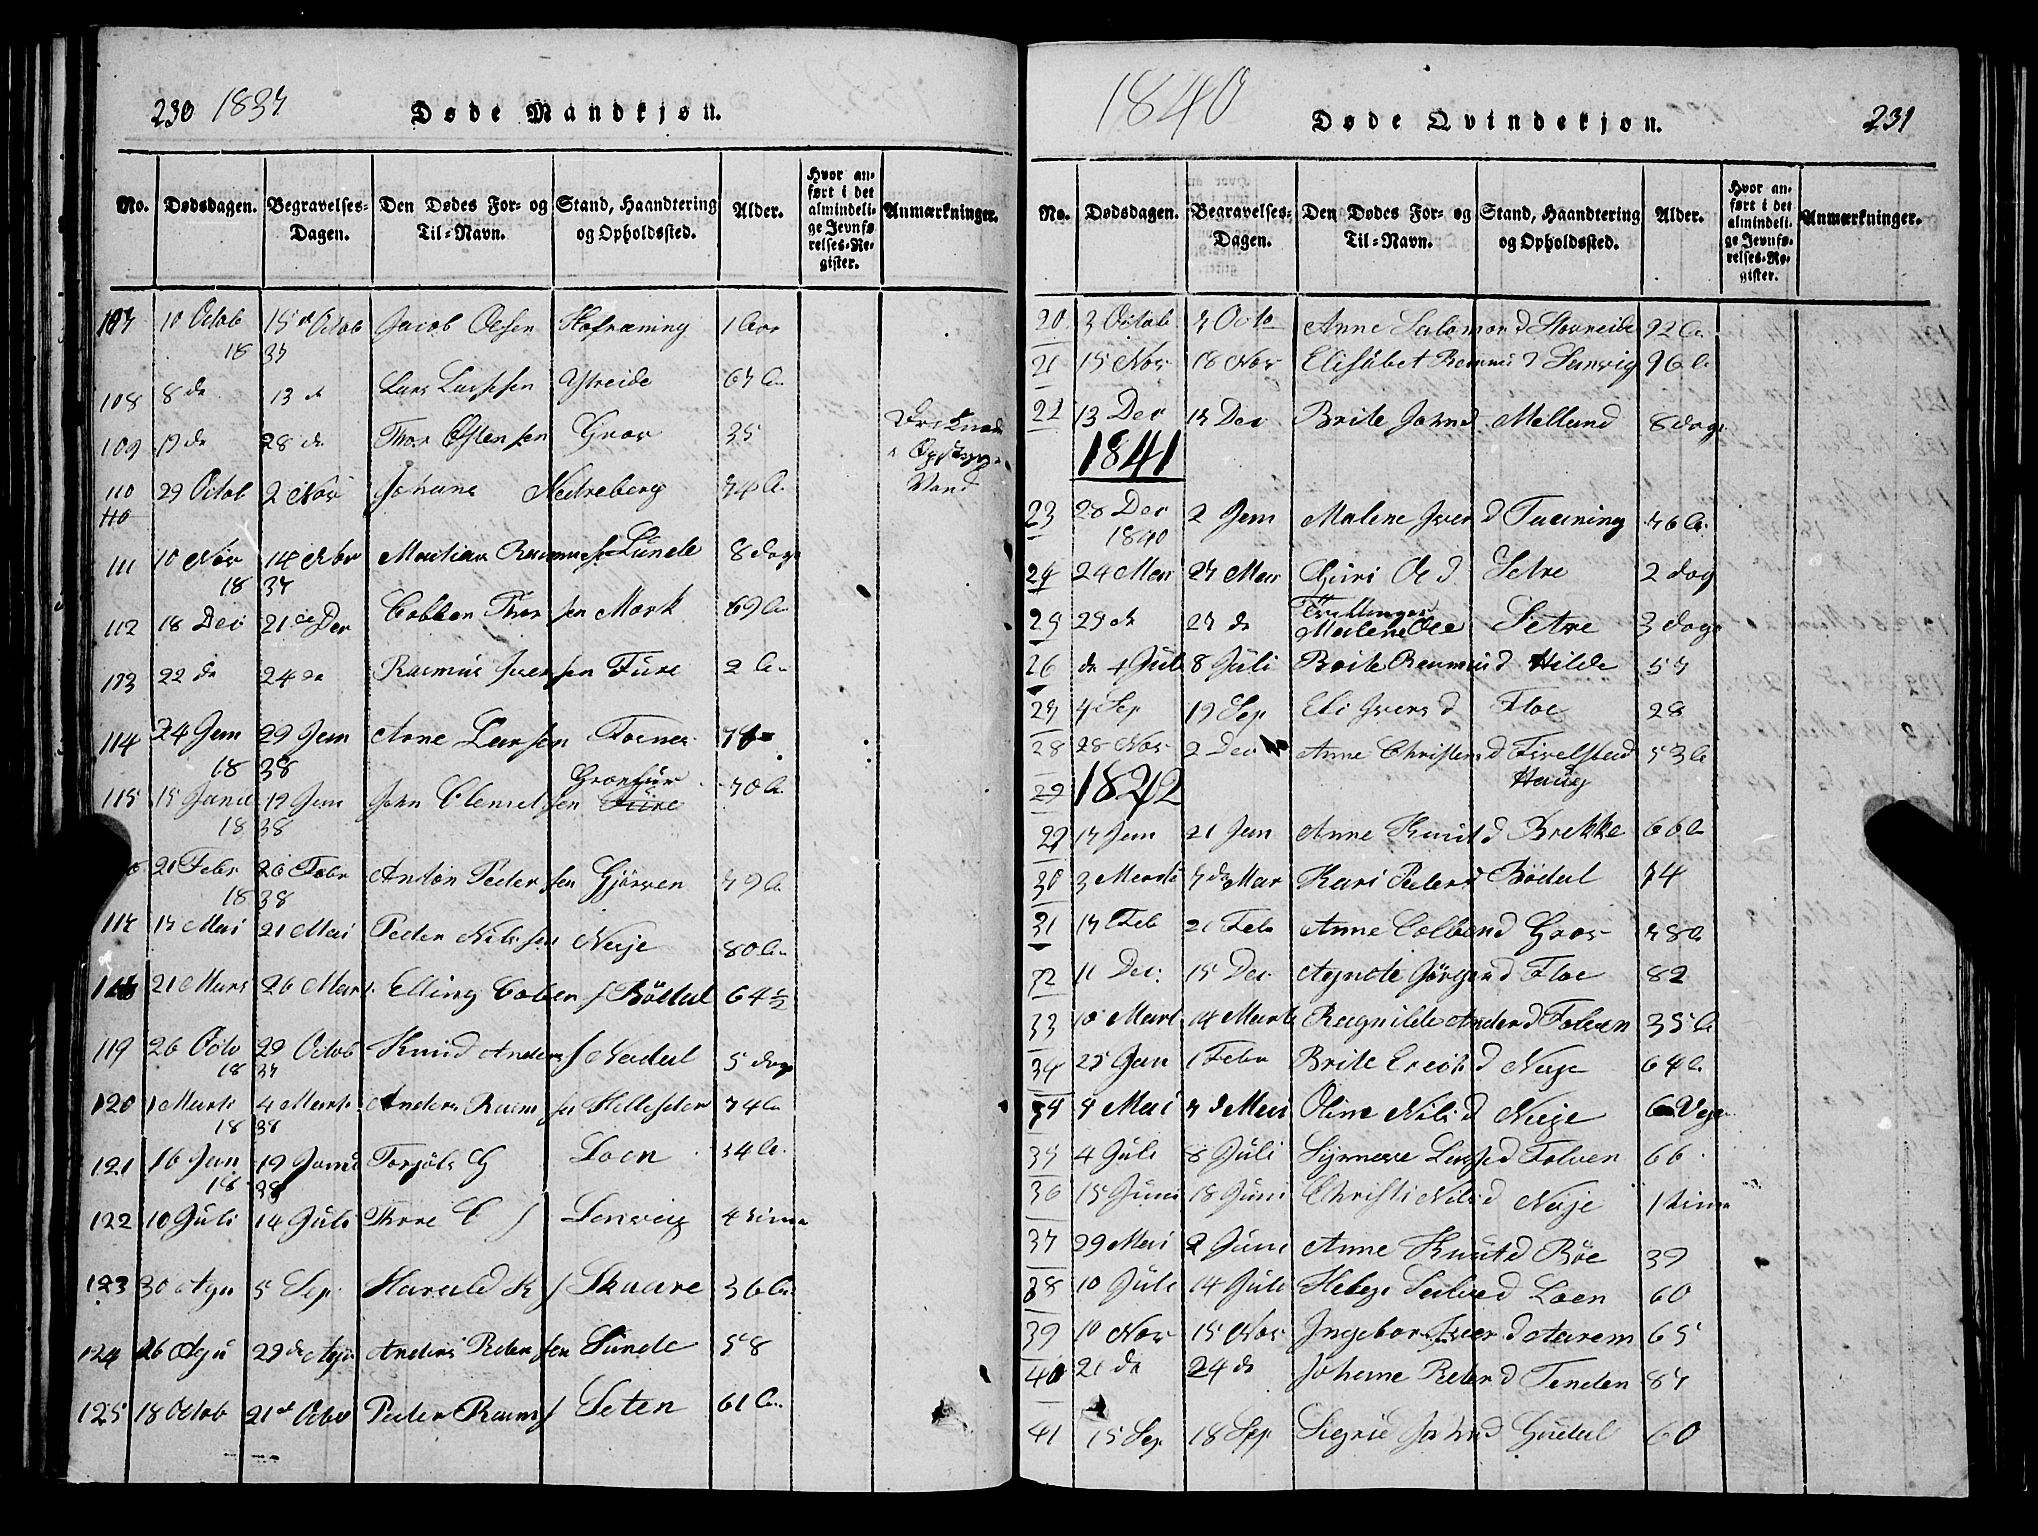 230 1837 Døde Mandkjøn.
No. Dødsdagen. Begravelses-Dagen. Den Dødes For- og Til-Navn. Stand, Haandtering og Opholdssted. Alder. Hvor anført i det almindelige Jevnførelses-Register. Anmærkninger.
107 10 Octob 15 d Octob Jacob Olsen 1 Aar
18 37
108 8 de 13 d Lars Larssen Ytreide 67 A
109 19 de 28 de Thor Ostensen Grov 35
110 29 Octob 2 Nov Johans Nedreberg 74 A
110 Vand
111 10 Nov 14 Nbr Mathias Rasmus s Sunde 8 dage
18 37
112 18 Dei 21 de Der Colben Thor sen Mork 69 A
113 22 de 24 de Rasmus Iver sen Fure 2 A
114 24 Jan 29 Jan Arne Larsen
18 38
115 15 Janu 19 Jan John Clemetsen 70 A
18 38
21 Febr 26 Febr Anton Peder sen Gjørven 79 A
18 38
117 17 Mai 21 Mai Peder Nilssen Nesje 80 A
118 21 Mars 26 Mars Elling Colben s Bödal 64 ½
119 26 Octo 29 Octob Knud Anders s Nesdal 5 dage
18 37
120 1 Marti 4 Marti Anders Rasm sn Hellesæter 74 A
18 38
121 16 Jan 19 Janu G Loen 34 A
18 38
122 10 Juli 14 Juli Thore C s 4 time
123 30 Agu 5 Sep Harald K s Skaare 36 A
124 26 Agu 29 de Agu Anders Peder sen Sunde 58
125 18 Octob 21 d Octo Peder Rasm s Seten 61 A
1840 Døde Qvindekjøn. 231
No. Dødsdagen. Begravelses-Dagen. Den Dødes For- og Til-Navn. Stand, Haandtering og Opholdssted. Alder. Hvor anført i det almindelige Jevnførelses-Register. Anmærkninger.
20 3 Octob 7 Octo Anne Salomon d 92 A
21 15 Nov 18 Nov Elisabet Rasmus d 96 A
22 13 Der 17 Der Brite John d Melland 8 dage
1841
23 28 Der 2 Jan Malene Iver d Tvening 76 A
1840
24 24 Mai 27 Mai Guri O d Setre 2 dag
Tvillinger
25 25 d 27 d Malene Ole Setre 3 dage
26 de 4 Juli 8 Juli Brite Rasmus d Hilde 57
27 4 Sep 19 Sep Eli Ivers d Floe 28
28 28 Nov 2 Der Anne Christen d Tivelstad 53 A
29 1842 Haug
29 17 Jan 21 Jan Anne Knud d Brekke 66 A
30 3 7 de Mar Kari Peder d Bödal 74
31 17 Feb 21 Feb Anne Colben d Grov 78 A
32 11 Der 15 Der Agnete Jörgen d Floe 82
33 10 Mart 14 Marti Ragnilde Ander d Folven 35 A
34 25 Jan 1 Febr Brite Erick d Nesje 64 A
34 4 Mai 7 d Mai Oline Nils d Nesje 6 Uge
35 4 Juli 8 Juli Synneve Lasse d Folven 66
36 15 Juni 18 Juni Christi Nils d Nesje 1 time
37 29 Mai 2 Juni Anne Knut d Böe 39
38 10 Juli 14 Juli Loen 60
39 10 Nov 15 Nov Ingebor Iver d Aarem 65
40 21 de 24 de Johanne Peder d Tenden 87
41 15 Sep 18 Sep Sigrid John d Gudal 60